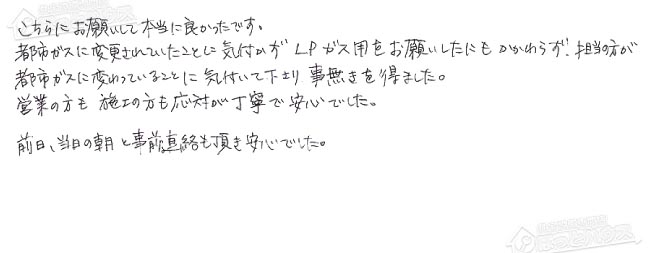 こちらにお願いして本当に良かったです。
都市ガスに変更されていたことに気付かず LPガス用をお願いしたにもかかわらず、担当の方が
都市ガスに変わっていることに気付いて下さり 事無きを得ました。
営業の方も 施工の方も応対が丁寧で安心でした。
前日、当日の朝と事前連絡も頂き安心でした。